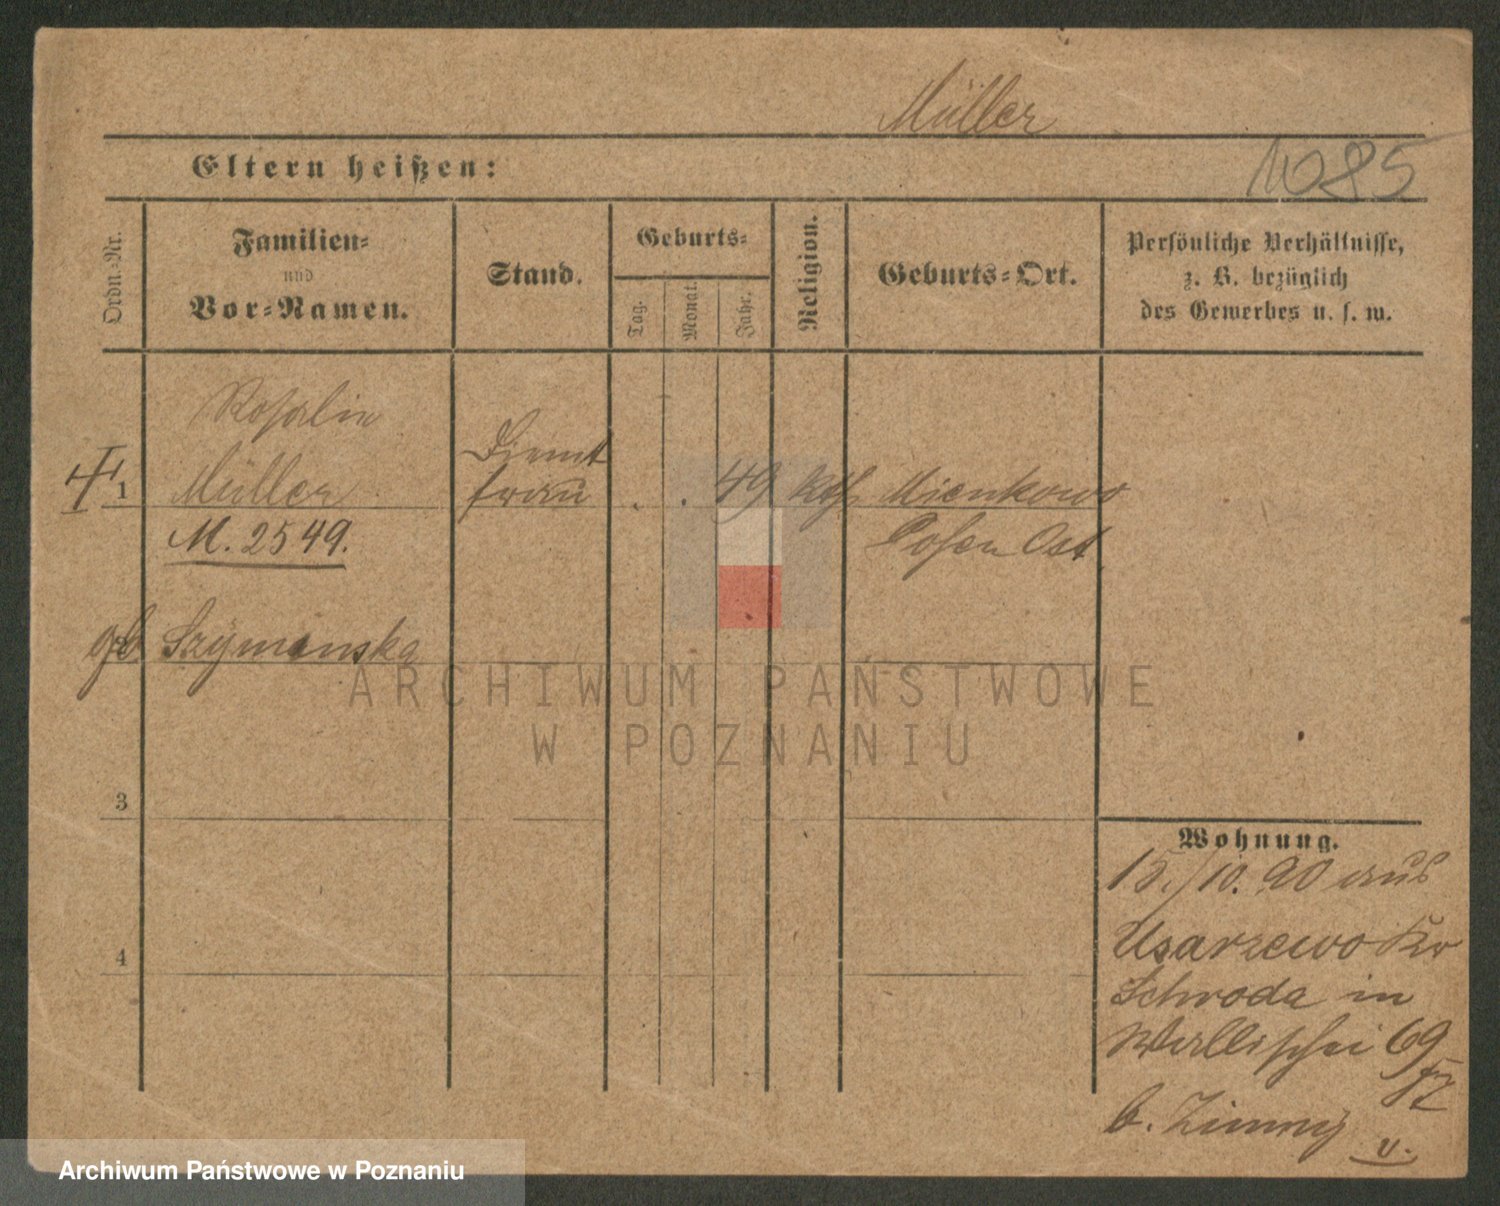 Müller
1085
Eltern heißen:
Ordn.-Nr.
Familien-
und
Vor-Namen.
Stand.
Geburts-
Tag.
Monat.
Jahr.
Religion.
Geburts-Ort.
Persönliche Verhältnisse,
z. B. bezüglich
des Gewerbes u. s. w.
Rosalie
1 Müller
M. 2549.
Dienst
frau
. . 49 kth Mienkowo
Posen Ost
gb Szymanska
3
4
Wohnung.
15./10. 90 aus
Usarzewo Kr
Schroda in
Wallischei 69
b. Zimny
v.
ARCHIWUM PAŃSTWOWE
W POZNANIU
Archiwum Państwowe w Poznaniu